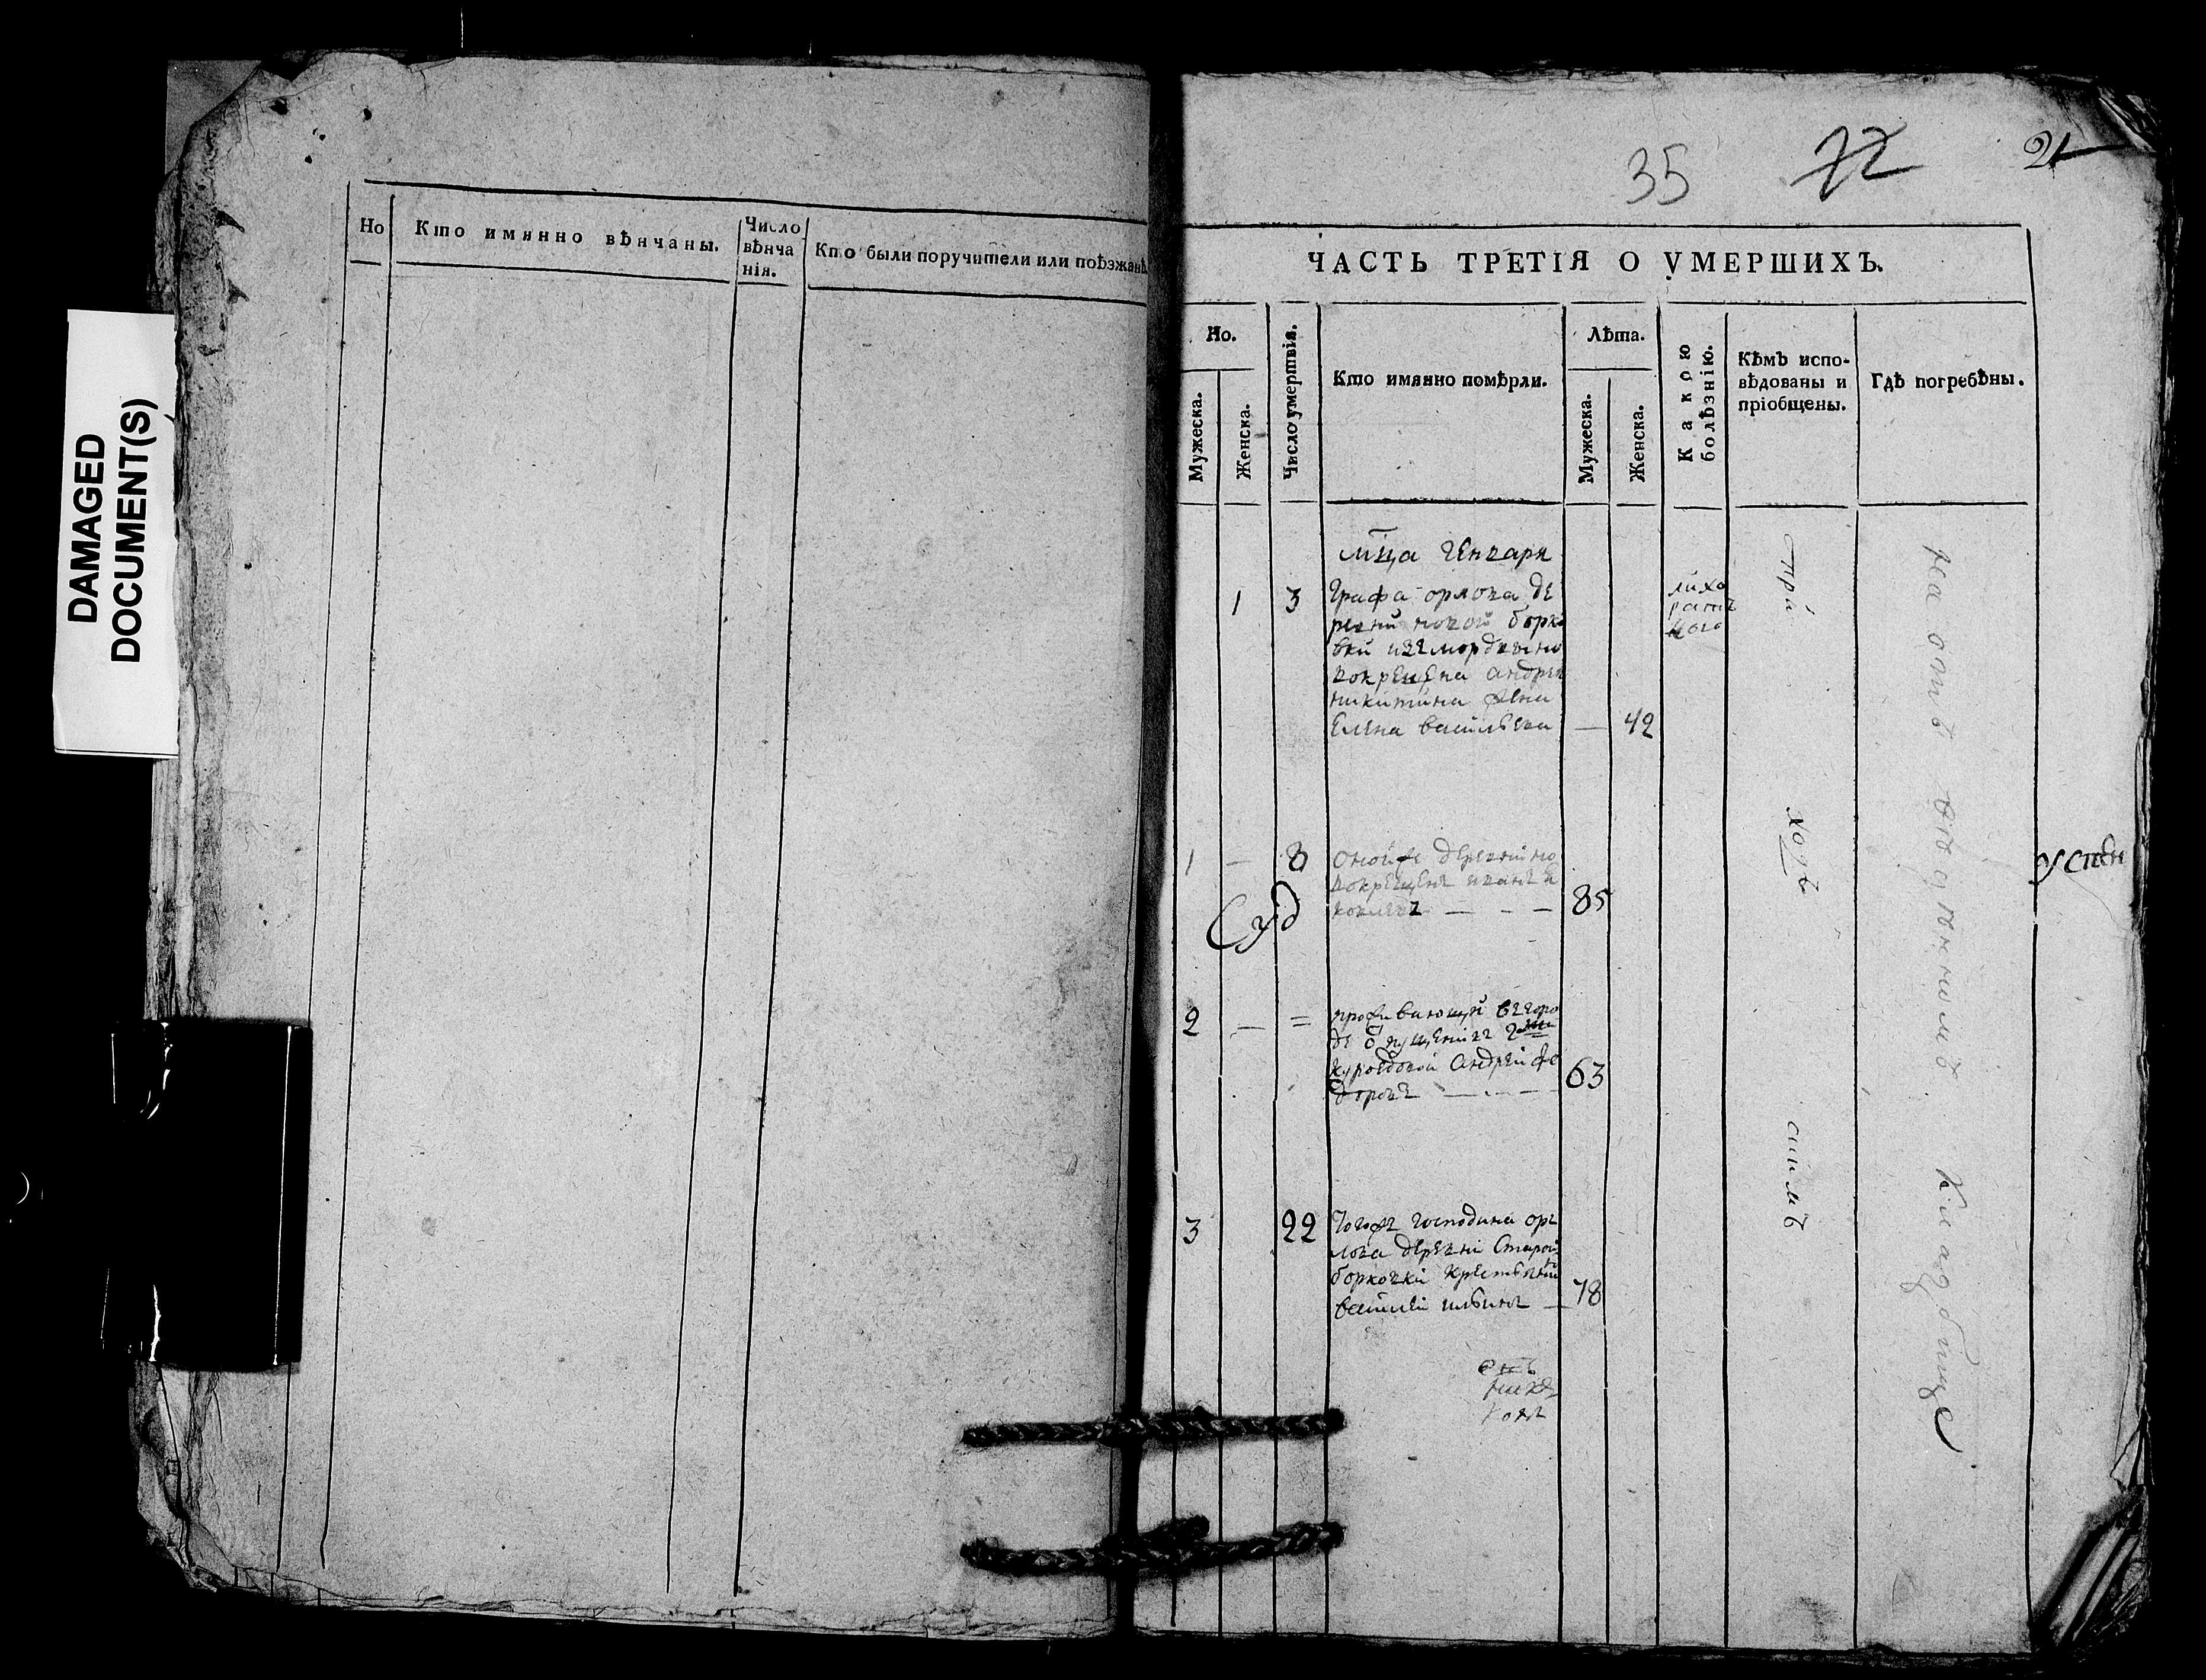 DAMAGED
DOCUMENT(S)
Но
Кто имянно вѣнчаны.
Число
вѣнча
нія.
Кто были поручители или поѣзжанѣ
35 22 21
ЧАСТЬ ТРЕТІЯ О УМЕРШИХЪ.
Но.
Мужеска.
Женска.
Число умертвія.
Кто имянно помѣрли.
Лѣта.
Мужеска.
Женска.
Какою
болѣзнію.
Кѣмъ испо-
вѣдованы и
пріобщены.
Гдѣ погребѣны.
мца генваря
1 3 Графа орлова де
ревни новой борк
вки изъ мордвы но
вокрещена андрея
никитина жена
Елена васильева — 42
лихо
ратк
ою
1 — 8 оной же деревни но
вокрещенъ иванъ я
ковлевъ — - — 85
2 — = проживающий въ горо
де
Андрей фе
доровъ 63
3 22 тогожъ господина ор
лова деревни Старой
борковки крестьянинъ
василей ильинъ — 78
при
ходъ
скимъ
на отъ ведѣномъ кладбище